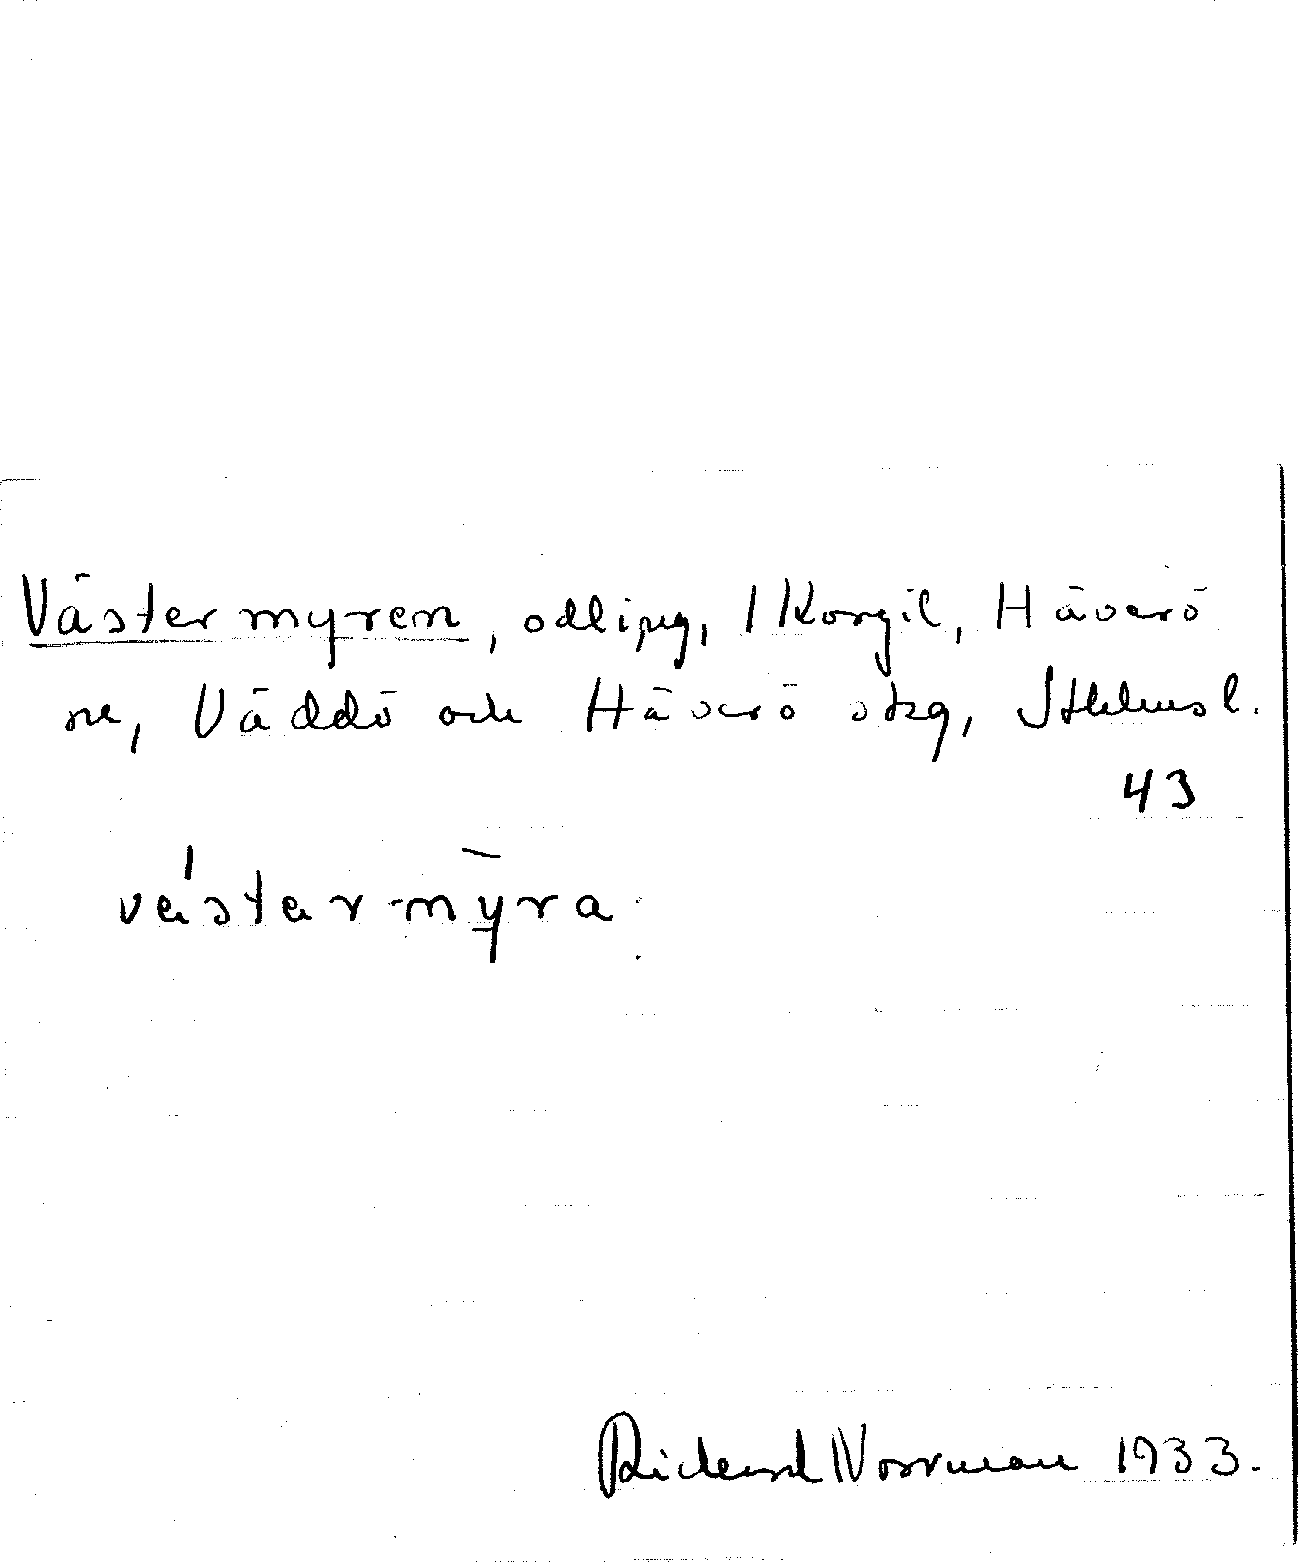 Västermyren, odling, 1 Korgil, Häverö
sn, Väddö och Häverö skg, Sthlmsl.
43
västar-my̱ra.
Rickard Norrman 1933.